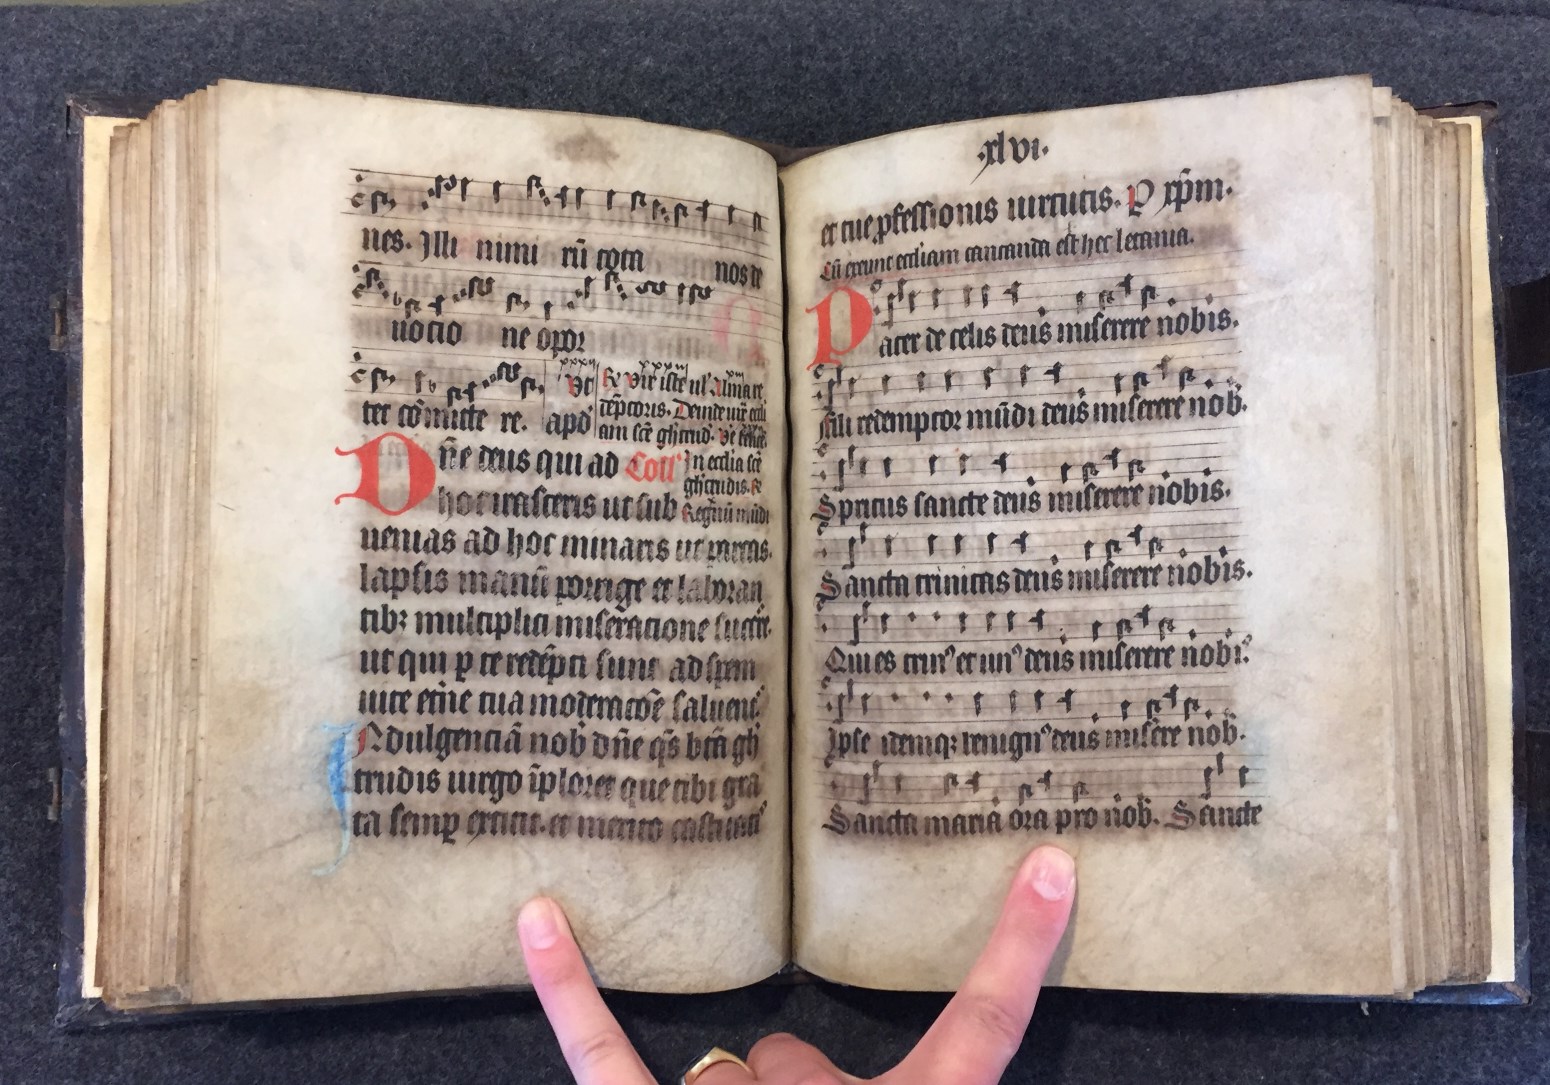 nes. Illi nimi rū cora nos de
uocio ne opor
ter cōmitte re. apd̄
Vt
Ry Vir iste ul' Alma re
dēptoris. Deinde
am scē ghtrud.
Dn̄e deus qui ad Coll' In ecclia scē
ghtrudis. R
hoc irasceris ut sub Regnū mūdi
uenias ad hoc minaris ut parcas.
lapsis manū porrige et laboran
tibꝫ multiplici miseracione succure.
ut qui ꝑ te redēpti sunt ad spem
uite et̄ne tua moderacōe saluent᷑
Indulgenciā nob̄ dn̄e q̄s btā gh
trudis uirgo īploret que tibi gra
ta semꝑ extitit. et merito castitatꝭ
.xlvi.
et tue ꝓfessionis uirtutis. P xp̄m.
Cū exeunt eccliam cantanda est hec letania.
Pater de celis deus miserere nobis.
Fili redemptor mūdi deus miserere nob.
Spiritus sancte deus miserere nobis.
Sancta trinitas deus miserere nobis.
Qui es trinꝰ et unꝰ deus miserere nobis.
Ipse idemqꝫ benignꝰ deus misere nob.
Sancta maria ora pro nob. Sancte